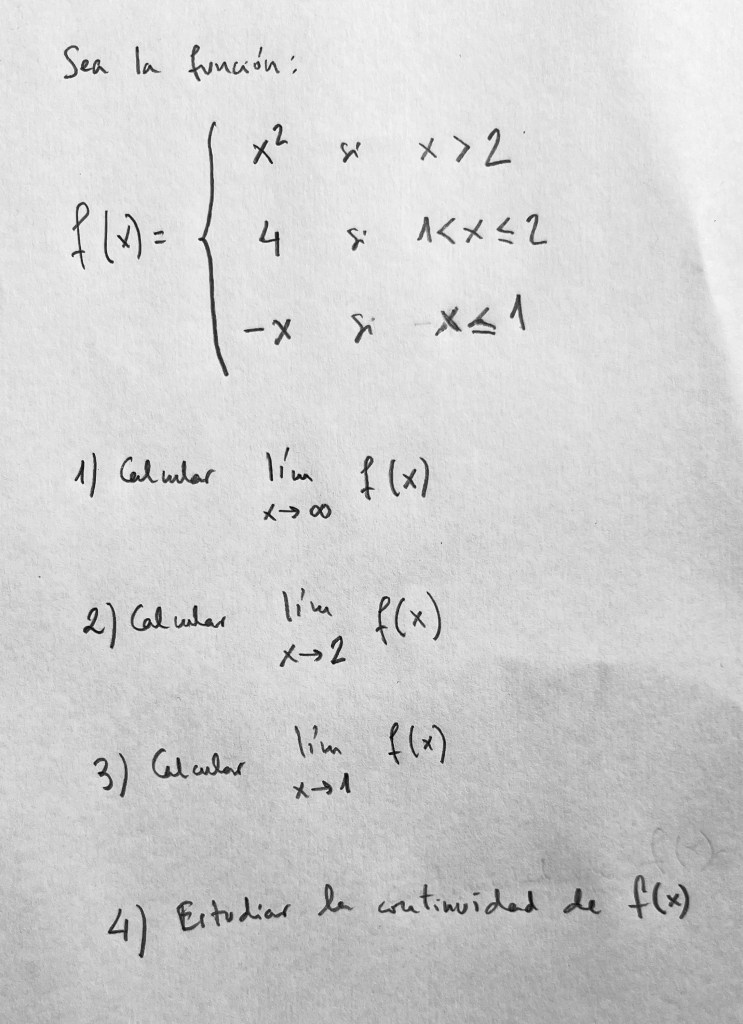 Sea la función:
x² si x > 2
f(x) = 4 si 1 < x ≤ 2
-x si x ≤ 1
1) Calcular lím f(x)
x→∞
2) Calcular lím f(x)
x→2
3) Calcular lím f(x)
x→1
4) Estudiar la continuidad de f(x)